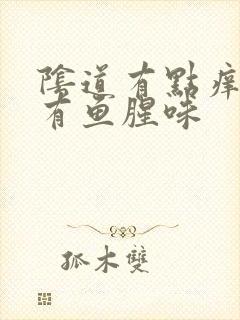 陰道有點痒
有鱼腥味
孤木雙